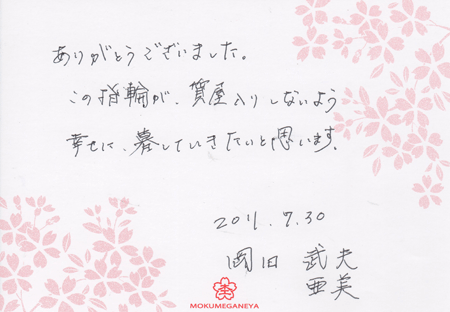 ありがとうございました。
この指輪が、質屋入りしないよう
幸せに、暮していきたいと思います。
2011.7.30
岡田 武夫
亜美
MOKUMEGANEYA